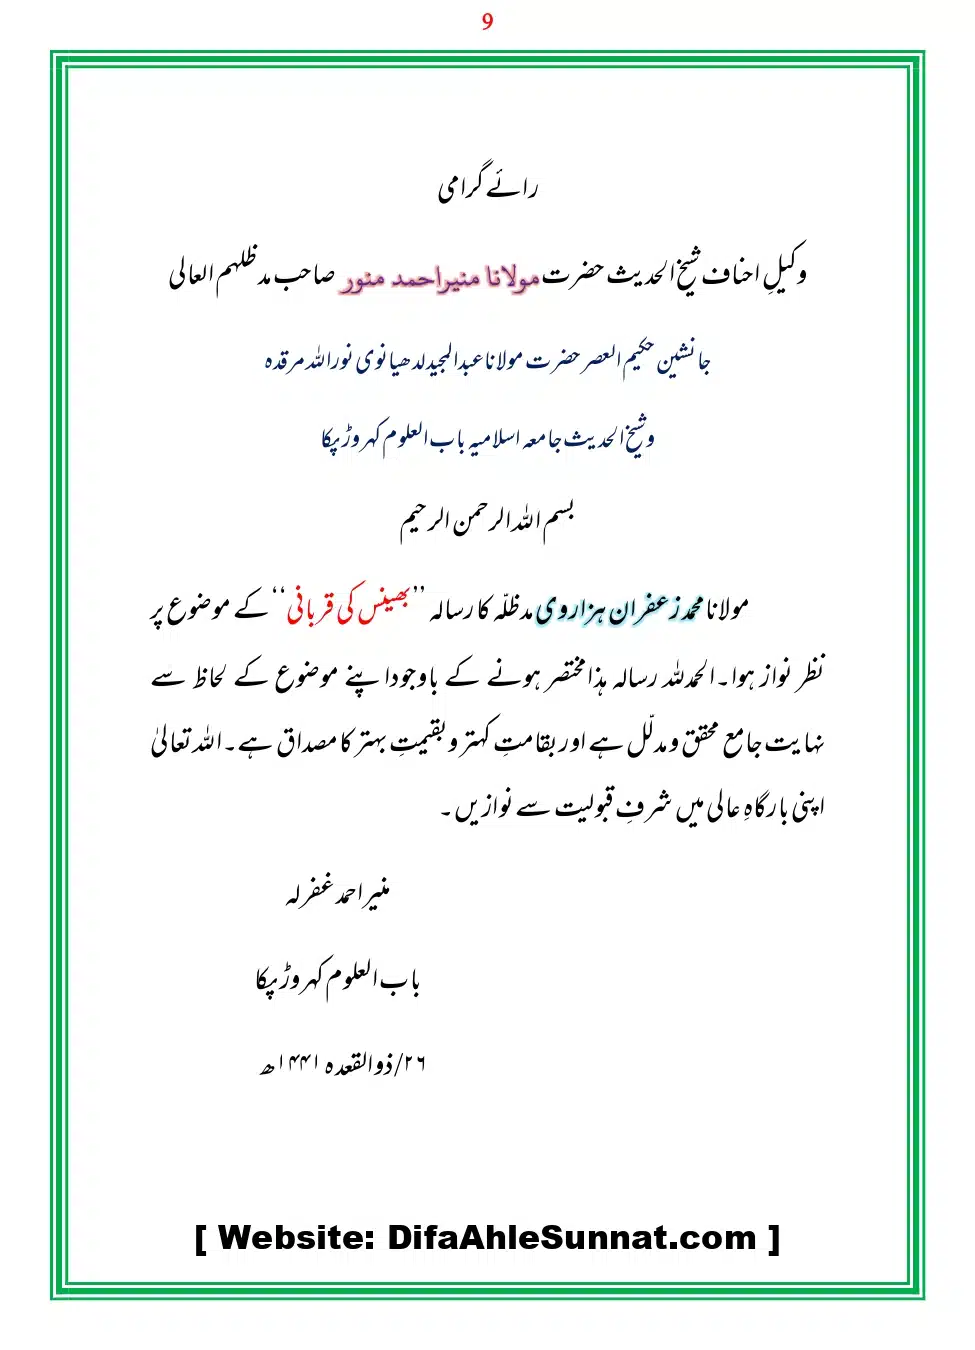 9
رائے گرامی
وکیلِ احناف شیخ الحدیث حضرت مولانا منیر احمد منور صاحب مد ظلہم العالی
جانشین حکیم العصر حضرت مولانا عبد المجید لدھیانوی نور اللہ مرقدہ
وشیخ الحدیث جامعہ اسلامیہ باب العلوم کہروڑپکا
بسم اللہ الرحمن الرحیم
مولانا محمد زعفران ہزاروی مدظلّہ کا رسالہ ’’بھینس کی قربانی‘‘ کے موضوع پر
نظر نواز ہوا۔ الحمدللہ رسالہ ہذا مختصر ہونے کے باوجود اپنے موضوع کے لحاظ سے
نہایت جامع محقق و مدلّل ہے اور بقامتِ کہتر و بقیمتِ بہتر کا مصداق ہے۔ اللہ تعالیٰ
اپنی بارگاہِ عالی میں شرفِ قبولیت سے نوازیں۔
منیر احمد غفرلہ
باب العلوم کہروڑپکا
۲۶/ذوالقعدہ ۱۴۴۱ھ
[ Website: DifaAhleSunnat.com ]